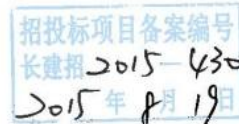 招投标项目备案编号
长建招2015-430
2015年8月19日